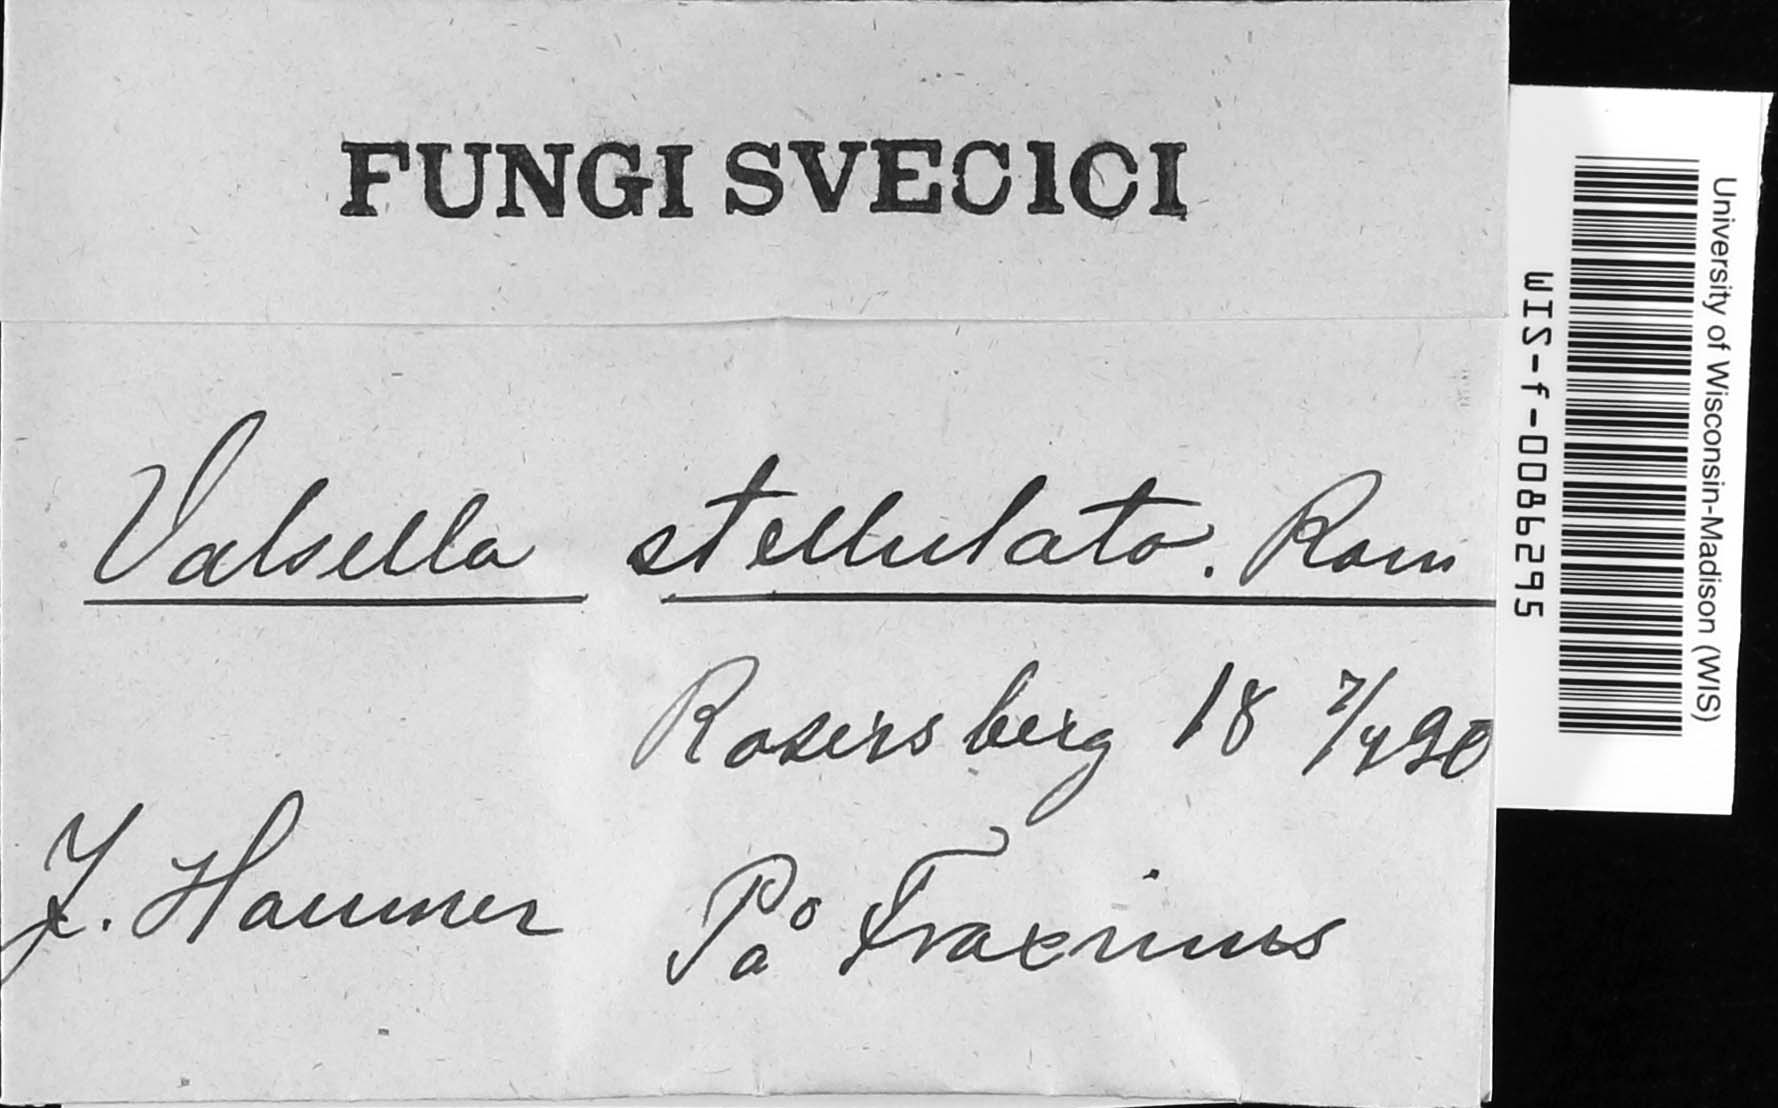 FUNGI SVECICI
Valsella stellulata. Rom
Rosersberg 18 7/4 90
J. Hammer På Fraxinus
University of Wisconsin-Madison (WIS)
WIS-f-0086295